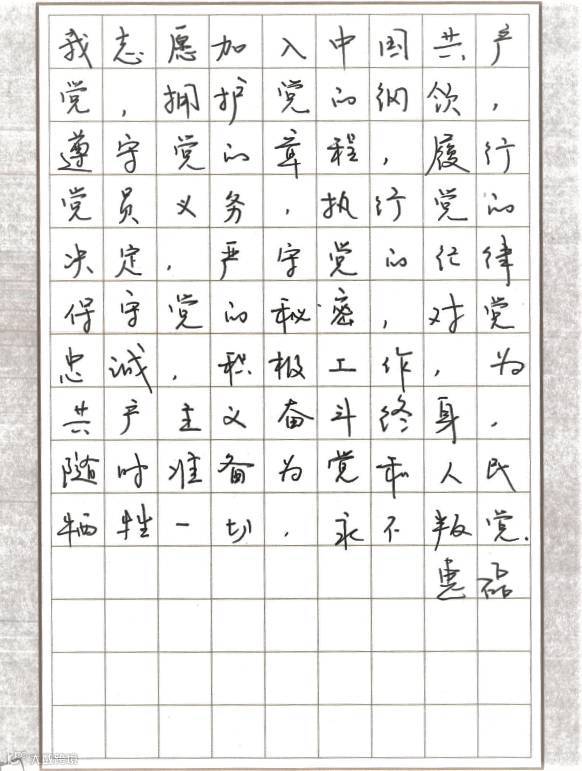 我志愿加入中国共产
党，拥护党的纲领，
遵守党的章程，履行
党员义务，执行党的
决定，严守党的纪律
保守党的秘密，对党
忠诚，积极工作，为
共产主义奋斗终身，
随时准备为党和人民
牺牲一切，永不叛党.
惠磊
大益跨境